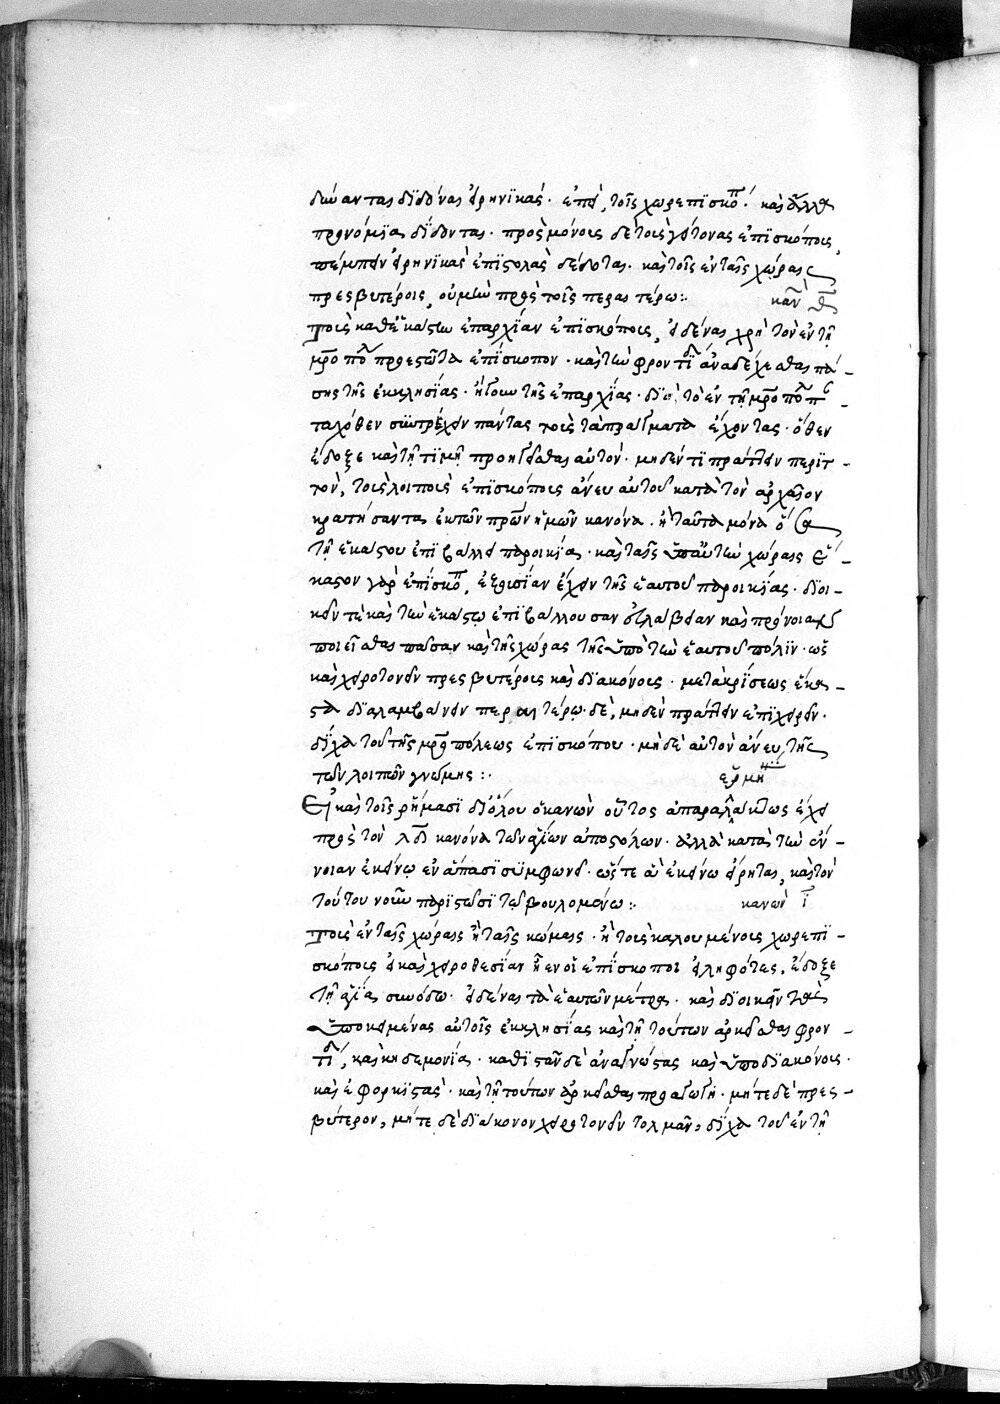 δώαντας διδόναι εἰρηνικάς. ἐπεὶ, τοῖς χωρεπισκόπ. καὶ ἄλλα
προνόμια δίδονται. πρὸς μόνοις δὲ τοῖς γείτονας ἐπισκόποις,
πέμπειν εἰρηνικὰς ἐπιστολὰς δέδοται. καὶ τοῖς ἐν ταῖς χώραις
πρεσβυτέροις, οὐ μὴν πρὸς τοῖς περαιτέρω: καν θ
Τοῖς καθ' ἑκάστην ἐπαρχίαν ἐπισκόποις, εἰδέναι χρὴ τὸν ἐν τῇ
μροπόλ προεστῶτα ἐπίσκοπον. καὶ τὴν φροντίδ ἀναδέχεσθαι πά-
σης τῆς ἐκκλησίας. ἤγουν τῆς ἐπαρχίας. διὰ τὸ ἐν τῇ μροπόλ π-
ταχόθεν συντρέχειν πάντας τοὺς τὰ πράγματα ἔχοντας. ὅθεν
ἔδοξε καὶ τῇ τιμῇ προηγεῖσθαι αὐτόν. μηδέν τι πράττειν περιτ-
τόν, τοὺς λοιποὺς ἐπισκόπους ἄνευ αὐτοῦ κατὰ τὸν ἀρχαῖον
κρατήσαντα ἐκ τῶν πρων ἡμῶν κανόνα. ἢ ταῦτα μόνα ὅσα
τῇ ἑκάστου ἐπιβάλλει παροικία. καὶ ταῖς ὑπ' αὐτὴν χώραις ἕ-
καστον γὰρ ἐπίσκοπ, ἐξουσίαν ἔχειν τῆς ἑαυτοῦ παροικίας. διοι-
κεῖν τε κατὰ τὴν ἑκάστῳ ἐπιβάλλουσαν εὐλάβειαν καὶ πρόνοιαν
ποιεῖσθαι πάσαν καὶ τῆς χώρας τῆς ὑπὸ τὴν ἑαυτοῦ πόλιν. ὡς
καὶ χειροτονεῖν πρεσβυτέροις καὶ διακόνοις. μετὰ κρίσεως ἕκα-
στα διαλαμβάνειν περαιτέρω δὲ, μηδὲν πράττειν ἐπιχειρεῖν.
δίχα τοῦ τῆς μροπόλεως ἐπισκόπου. μηδὲ αὐτὸν ἄνευ τῆς
τῶν λοιπῶν γνώμης: ἑρμη
Εἰ καὶ τοῖς ῥήμασι διόλου ὁ κανὼν οὗτος ἀπαραλλάκτως ἔχει
πρὸς τὸν λδ κανόνα τῶν ἁγίων ἀποστόλων. ἀλλὰ κατὰ τὴν ἔν-
νοιαν ἐκείνῳ ἐν ἅπασι σύμφωνεῖ. ὥστε ἃ ἐκείνω εἴρηται, καὶ τὸν
τούτου νοῦν παριστῶσι τῷ βουλομένω: κανὼν ι
Τοὺς ἐν ταῖς χώραις ἢ ταῖς κώμαις. ἢ τοὺς καλουμένοις χωρεπι-
σκόποις εἰ καὶ χειροθεσίαν ἦεν οἱ ἐπίσκοποι εἰληφότες, ἔδοξε
τῇ ἁγίᾳ συνόδω. εἰδέναι τὰ ἑαυτῶν μέτρα. καὶ διοικεῖν τὰς
ὑποκειμένας αὐτοῖς ἐκκλησίας καὶ τῇ τούτων ἀρκεῖσθαι φρον-
τίδ, καὶ κηδεμονία. καθιστᾶν δὲ ἀναγνώστας καὶ ὑποδιακόνοις.
καὶ ἐφορκιστὰς. καὶ τῇ τούτων ἀρκεῖσθαι προαγωγῇ. μήτε δὲ πρεσ-
βύτερον, μήτε δὲ διάκονον χειροτονεῖν τολμᾶν, δίχα τοῦ ἐν τῇ